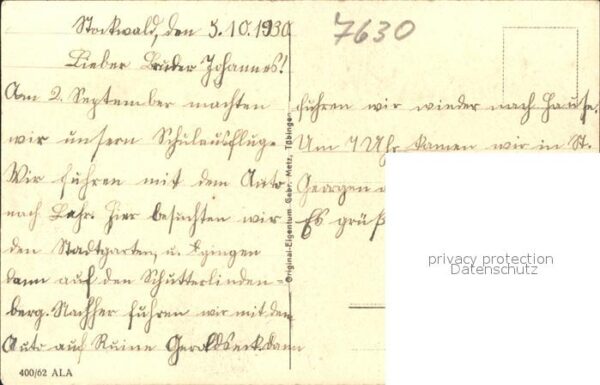 Stockwald, den 5.10.1930
7630
Lieber Bruder Johannes!
Am 2. September machten
wir unsern Schulausflug.
Wir fuhren mit dem Auto
nach Lahr. Hier besuchten wir
den Stadtgarten, u. gingen
dann auf den Schutterlinden=
berg. Nachher fuhren wir mit dem
Auto auf Ruine Geroldseck. Dann
400/62 ALA
Original-Eigentum Gebr. Metz, Tübingen
fuhren wir wieder nach Hause.
Um 7 Uhr kamen wir in St.
Georgen
Es grüß
privacy protection
Datenschutz